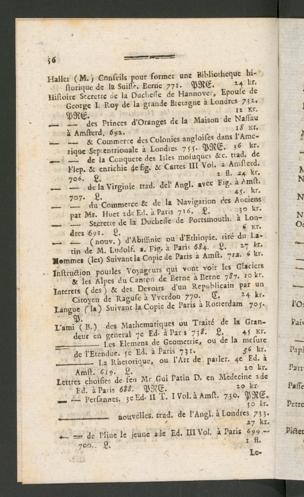 56
Haller (M.) Conseils pour former une Bibliotheque hi-
storique de la Suisse. Berne 771. PRE. 24 kr.
Histoire Secrete de la Duchesse de Hannover, Epouse de
George I. Roy de la grande Bretagne à Londres 732.
PRE. 12 kr.
— — des Princes d'Oranges de la Maison de Nassau
à Amsterd. 692. 18 kr.
— — & Commerce des Colonies angloises dans l'Ame-
rique Septentrionale à Londres 755. PRE. 36 kr.
— — de la Conquete des Isles moluques &c. trad. de
l'esp. & enrichie de fig. & Cartes III Vol. à Amsterd.
706. L. 2 fl. 24 kr.
— — de la Virginie trad. de l'Angl. avec Fig. à Amst.
707. L. 45 kr.
— — du Commerce & de la Navigation des Anciens
par Mr. Huet 2de Ed. à Paris 716. L. 30 kr.
— — Secrete de la Duchesse de Portsmouth. à Lon-
dres 691. L. 6 kr.
— — (nouv.) d'Abissinie ou d'Ethiopie. tiré du La-
tin de M. Ludolf. a. Fig. à Paris 684. L. 27 kr.
Hommes (les) Suivant la Copie de Paris à Amst. 712. 6 kr.
Instruction pour les Voyageurs qui vont voir les Glaciers
& les Alpes du Canton de Berne à Berne 787. 10 kr.
Interets (des) & des Devoirs d'un Republicain par un
Citoyen de Raguse à Yverdon 770. C. 24 kr.
Langue (la) Suivant la Copie de Paris à Rotterdam 705.
P.
L'ami (B.) des Mathematiques ou Traité de la Gran-
deur en general 7e Ed. à Paris 738. L. 45 kr.
— — Les Elemens de Geometrie, ou de la mesure
de l'Etendue. 5e Ed. à Paris 731. 36 kr.
— — La Rhetorique, ou l'Art de parler. 4e Ed. à
Amst. 699. L. 20 kr.
Lettres choisies de feu Mr Gui Patin D. en Medecine 2de
Ed. à Paris 688. PRE. 20 kr.
— — Persannes, 3e Ed. II T. I Vol. à Amst. 730. PRE.
50 kr.
— — nouvelles. trad. de l'Angl. à Londres 733.
27 kr.
— — de Pline le jeune 2de Ed. III Vol. à Paris 699 —
700. L. 1 fl.
Le-